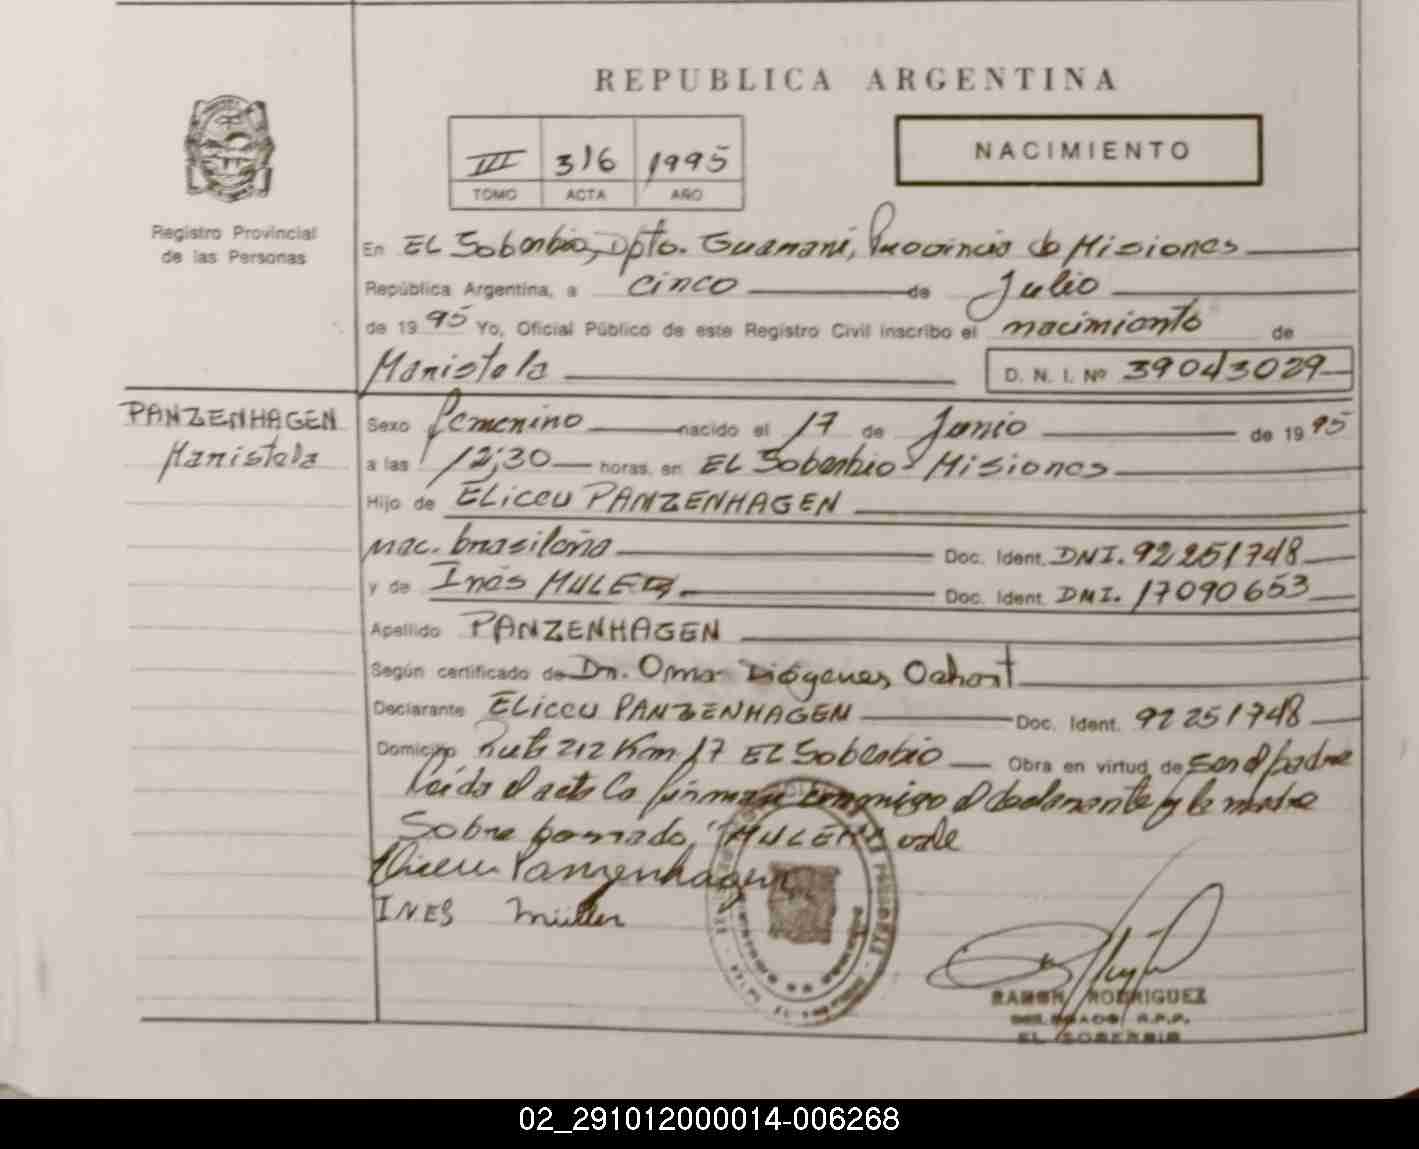 REPUBLICA ARGENTINA
III 316 1995
TOMO ACTA AÑO
NACIMIENTO
Registro Provincial
de las Personas
En EL Soberbio, Dpto. Guaraní, Provincia de Misiones
República Argentina, a cinco de Julio
de 1995 Yo, Oficial Público de este Registro Civil inscribo el nacimiento de
Maristela
D. N. I. Nº 39043029
PANZENHAGEN
Maristela
Sexo femenino nacido el 17 de Junio de 1995
a las 12;30 horas, en EL Soberbio - Misiones
Hijo de ELiceu PANZENHAGEN
nac. brasileña Doc. Ident. DNI. 92251748
y de Inés Doc. Ident. DNI. 17090653
Apellido PANZENHAGEN
Según certificado de Dr. Omar Diógenes
Declarante ELiceu PANZENHAGEN Doc. Ident. 92251748
Domicilio Ruta 212 Km 17 EL Soberbio Obra en virtud de ser el padre
Leída el acta la firman conmigo el declarante y la madre
Sobre borrado, vale
Eliceu Panzenhagen
INES Müller
RAMON RODRIGUEZ
DELEGADO R.P.P.
EL SOBERBIO
02_291012000014-006268